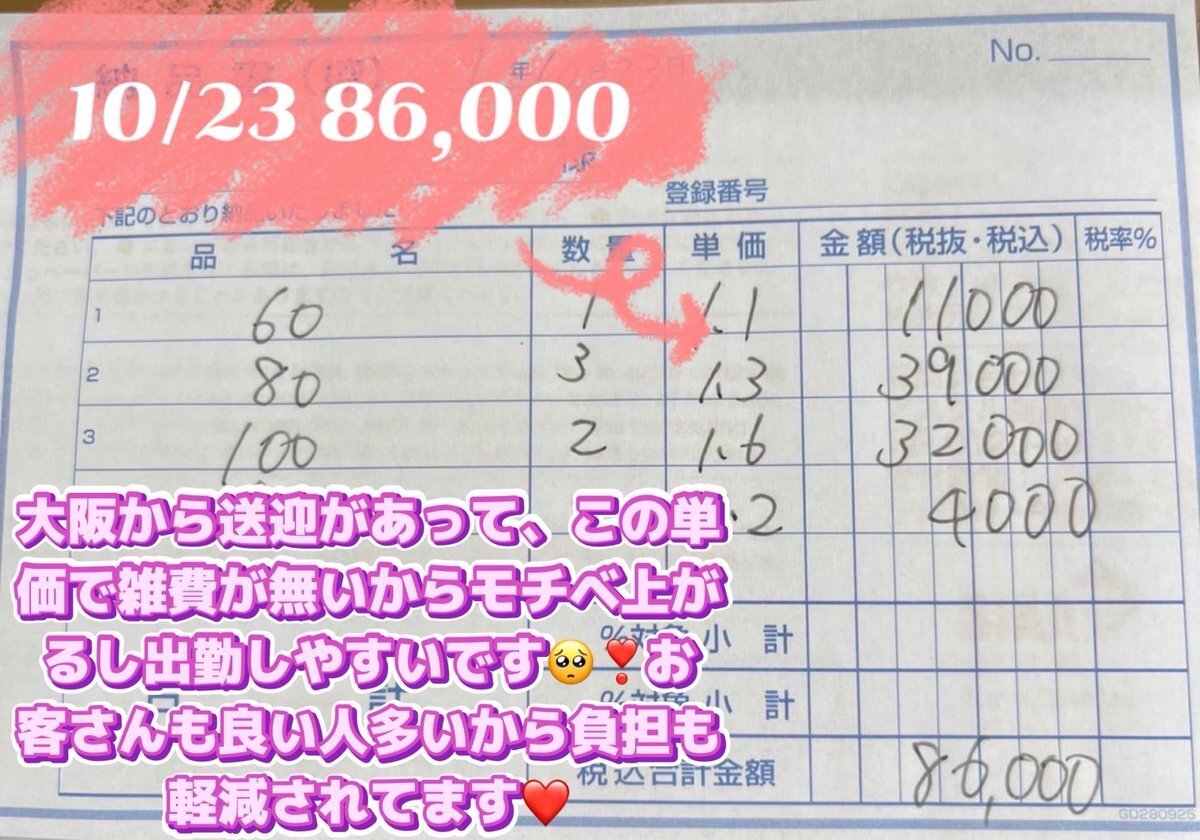 No.
10/23 86,000
登録番号
下記のとおり納品いたしました
品 名 数 量 単 価 金 額(税抜・税込) 税率%
1 60 1 1.1 11000
2 80 3 1.3 39000
3 100 2 1.6 32000
.2 4000
大阪から送迎があって、この単
価で雑費が無いからモチベ上が
%対象 小 計
るし出勤しやすいです🥺❣️お
%対象 小 計
客さんも良い人多いから負担も
税込合計金額 86,000
軽減されてます❤️
GD280925